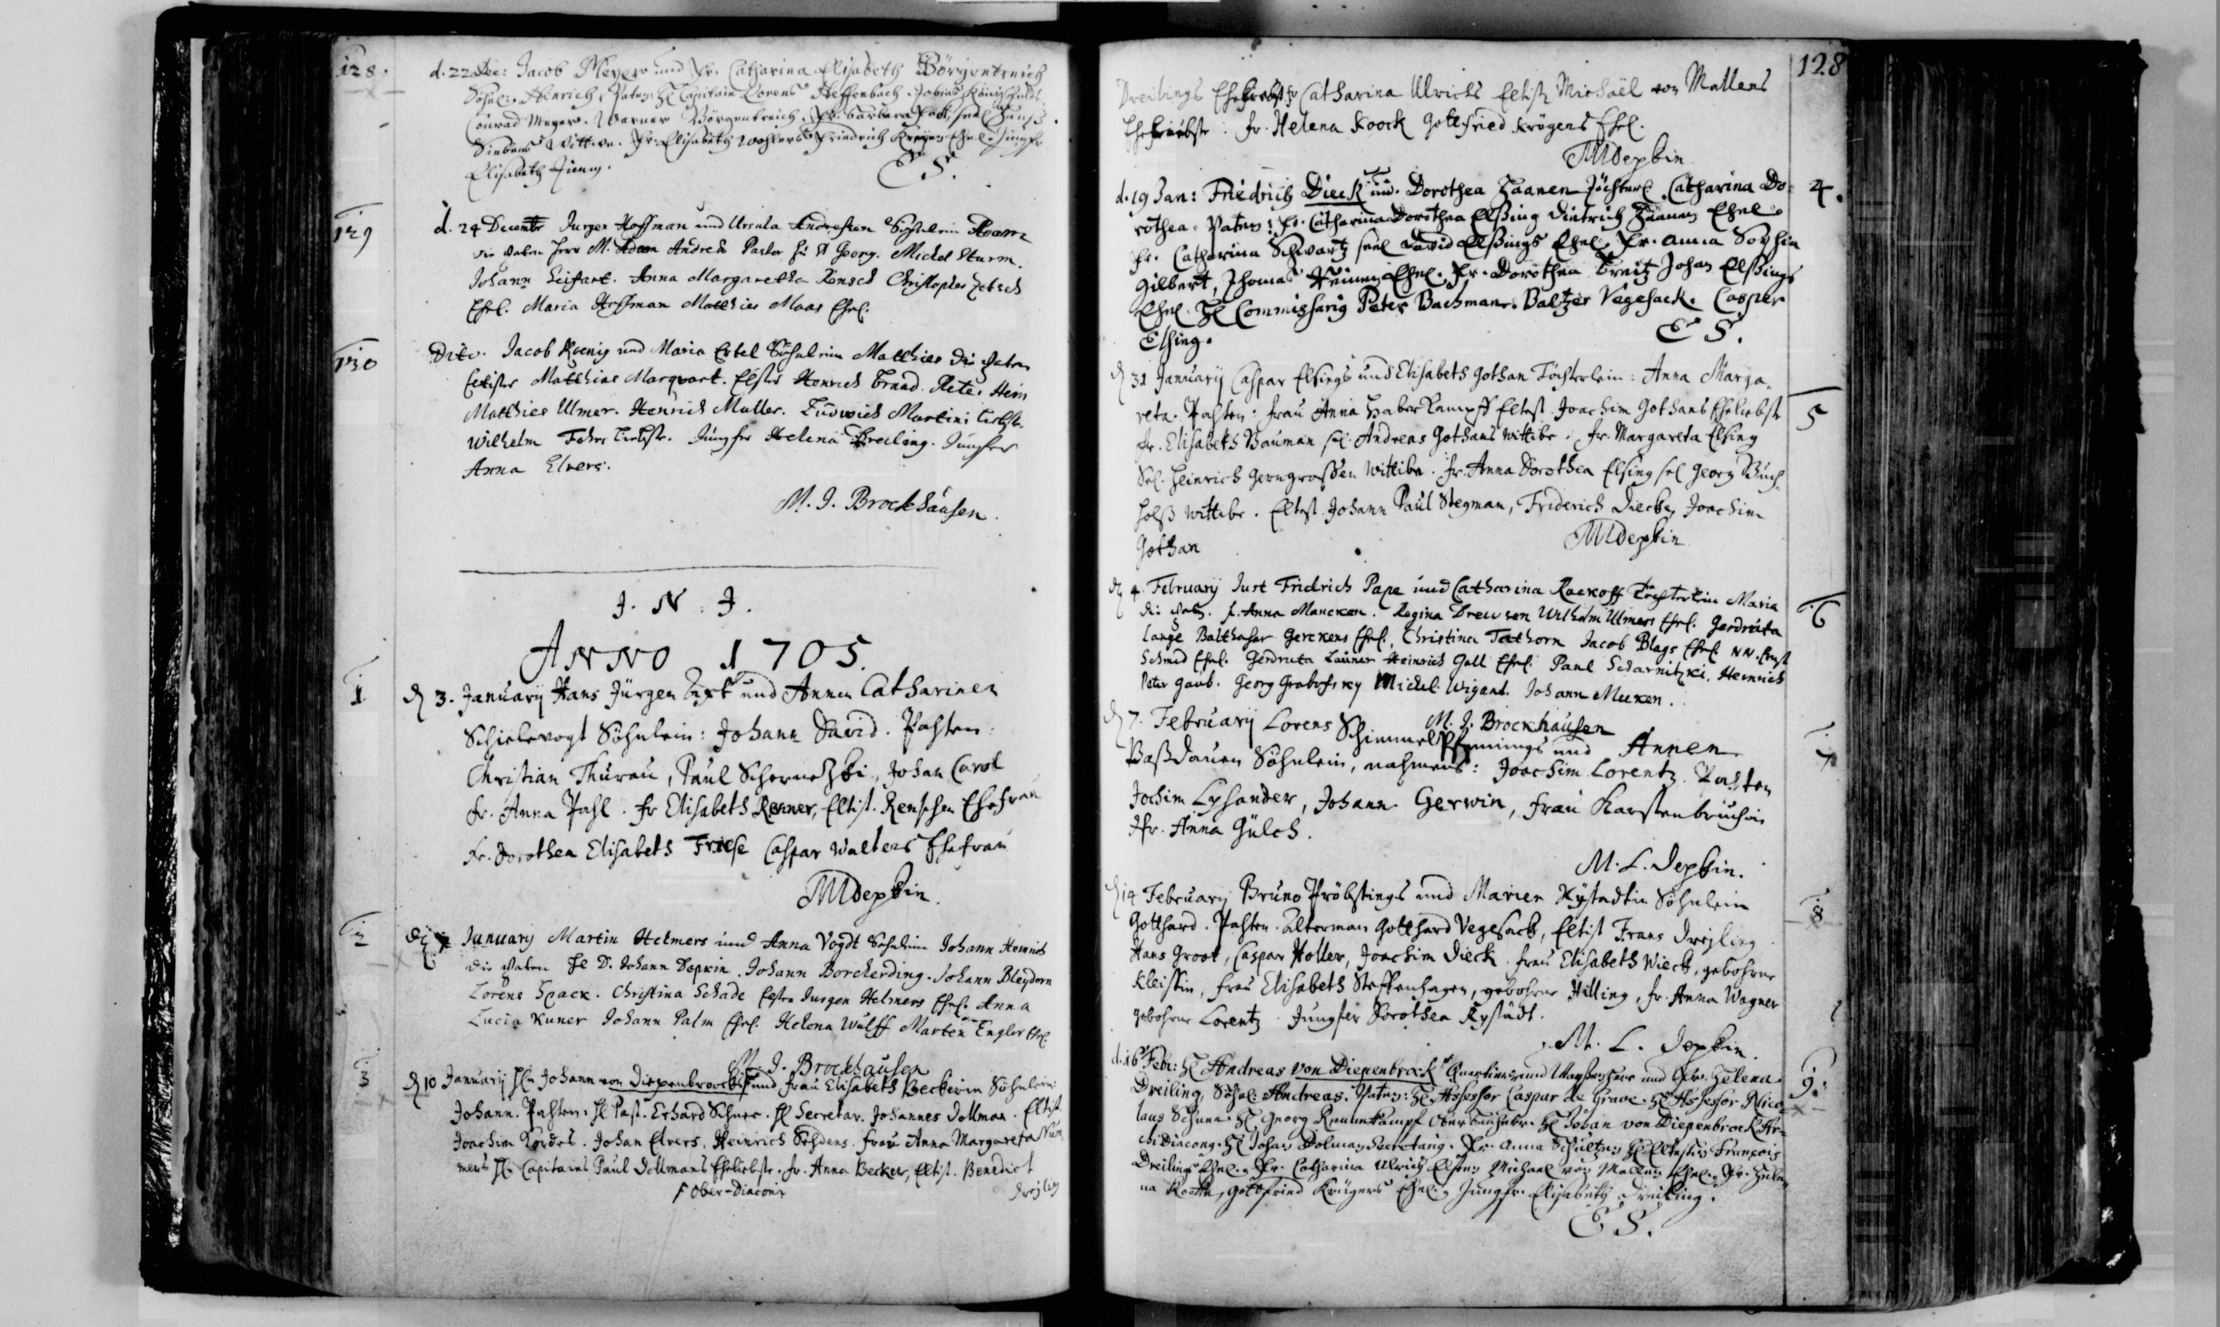 128.
d. 22 Dec: Jacob Meyer und Fr. Catharina Elisabeth Börgentreich
Söhnl. Hinrich. Paten: H. Capitain Lorens Heffenbach. Tobias
Conrad Meyer. Warner Börgentreich. Fr. Barbara
Wittwe. Fr. Elisabeth Friedrich Ehel. Jungfr
Elisabeth
E S.
129
d. 24 Decembr Jurgen Hoffman und Ursula Andresen Söhnlein
die Paten Herr M. Adam Andreæ Pastor zu St Georg. Michel Sturm.
Johann Seifart. Anna Margaretha Christopher
Ehel. Maria Hoffman Matthies Maas Ehel.
130
Dito. Jacob Koenig und Maria Ertel Söhnlein Matthies die Paten
Eltister Matthias Marquart. Elster Henrich Brand. Peter Hein
Matthies Ulmer. Henrich Muller. Ludwich Martini Liebst.
Wilhelm Fehre Liebst. Jungfer Helena Breiling. Jungfer
Anna Elvers.
M. J. Brockhausen.
J. N. J.
ANNO 1705.
1
d 3. Januarij Hans Jürgen Axt und Annen Catharinen
Schielevogt Söhnlein: Johann David. Pahten:
Christian Thurau, Paul Schernetzki, Johan Carol
fr. Anna Pahl. fr Elisabeth Renner, Eltist. Renschen Ehefrau
fr. Dorothea Elisabeth Friese Caspar Walters Ehefrau
MLdepkin.
2
d 7 January Martin Helmers und Anna Vogdt Söhnlein Johann Henrich
die Paten He D. Johann Depkin. Johann Borcherding. Johann Bleydorn
Lorens Spack. Christina Schade Elsten Jurgen Helmers Ehel. Anna
Lucia Kuner Johann Palm Ehel. Helena Wulff Marten Engler Ehel.
M. J. Brockhausen
3
d 10 Januarij H. Johann von Diepenbroock und frau Elisabeth Beckerin Söhnlein:
Johann. Pahten: H. Past. Erhard Schnee. H Secretar. Johannes Dollman. Eltist.
Joachim Johan Elvers. Heinrich Söhdens. frau Anna Margareta
mers H. Capitains Paul Dollmans Eheliebste. fr. Anna Becker, Eltist. Benedict
Ober-Diaconi Dreyling
128
Dreilings Eheliebste fr Catharina Ulrichs Eltist Michaël von Mallens
Eheliebste. fr. Helena Koock Gottfried Krögens Ehel.
MLdepkin
4.
d. 19 Jan: Friedrich Dieck und Dorothea Zaanen Töchterl. Catharina Do-
rothea. Paten: Fr. Catharina Dorothea Elssing Dietrich Zaanen Ehel.
Fr. Catharina Schwartz seel David Elssings Ehel, Fr. Anna Sophia
Gilbert, Thomas Ehel. Fr. Dorothea Johan Elssings
Ehel. H. Commissarig Peter Bachman, Baltzer Vegesack. Casper
Elsing.
E S.
5
d 31 Januarij Caspar Elsings und Elisabeth Gothan Töchterlein: Anna Marga-
reta. Pahten: frau Anna Haberkampff Eltest. Joachim Gothans Eheliebste
fr. Elisabeth Bauman sel. Andreas Gothans Wittibe. fr. Margareta Elsing
Sel. Heinrich Gerngrossen Wittibe. fr. Anna Dorothea Elsing sel Georg Buch-
holtz Wittibe. Eltest. Johann Paul Stegman, Friderich Diecke, Joachim
Gothan
MLdepkin
6
d 4. February Jurt Fridrich Pape und Catharina Rackoff Tochterlein Maria
die Pat. f. Anna Mancken. Regina Drewsen Wilhelm Ulmers Ehel. Gerdruta
Lange Balthasar Gerckens Ehel. Christina Tathorn Jacob Blags Ehel NN. Ernst
Schmed Ehel. Gerdruta Launer Heinrich Gall Ehel. Paul Scharnitzki, Heinrich
Peter Gaub. Georg Grabofsky Michel Wigant. Johann Muxen.
M. J. Brockhausen
7
d 7. February Lorens Schimmelpfennings und Annen
Passdauen Söhnlein, nahmens: Joachim Lorentz. Pahten
Jochim Lysander, Johann Gerwin, frau Karstenbruchin
Jfr. Anna Gülch.
M. L. Depkin.
8
d 14 February Bruno Pröbstings und Marien Rystadtin Söhnlein
Gotthard. Pahten. Alterman Gotthard Vegesack, Eltist Frans Dreyling
Hans Groot, Caspar Holler, Joachim Dieck. frau Elisabeth Wieck, gebohrne
Kleissin, frau Elisabeth Steffenhagen, gebohrne Hilling, fr. Anna Wagner
gebohrne Lorentz. Jungfer Dorothea Rystädt.
M. L. Depkin.
9.
d. 16 Febr: H. Andreas von Diepenbrock Quartier und und Fr. Helena
Dreiling Söhnl: Andreas. Paten: H. Assessor Caspar de Grave. H. Assessor Nico-
laus Schunn. H. Georg Rennenkampf H. Johan von Diepenbrock Ar-
chidiacong. H. Johan Dolman Secretarig. Fr. Anna Schultzen H. Eltesten François
Dreiling Ehel. Fr. Catharina Ulrich Elsten Michael von Mallen Ehel. Fr. Hele-
na Koock, Gottfried Krügers Ehel. Jungfr. Elisabeth Dreiling.
E S.